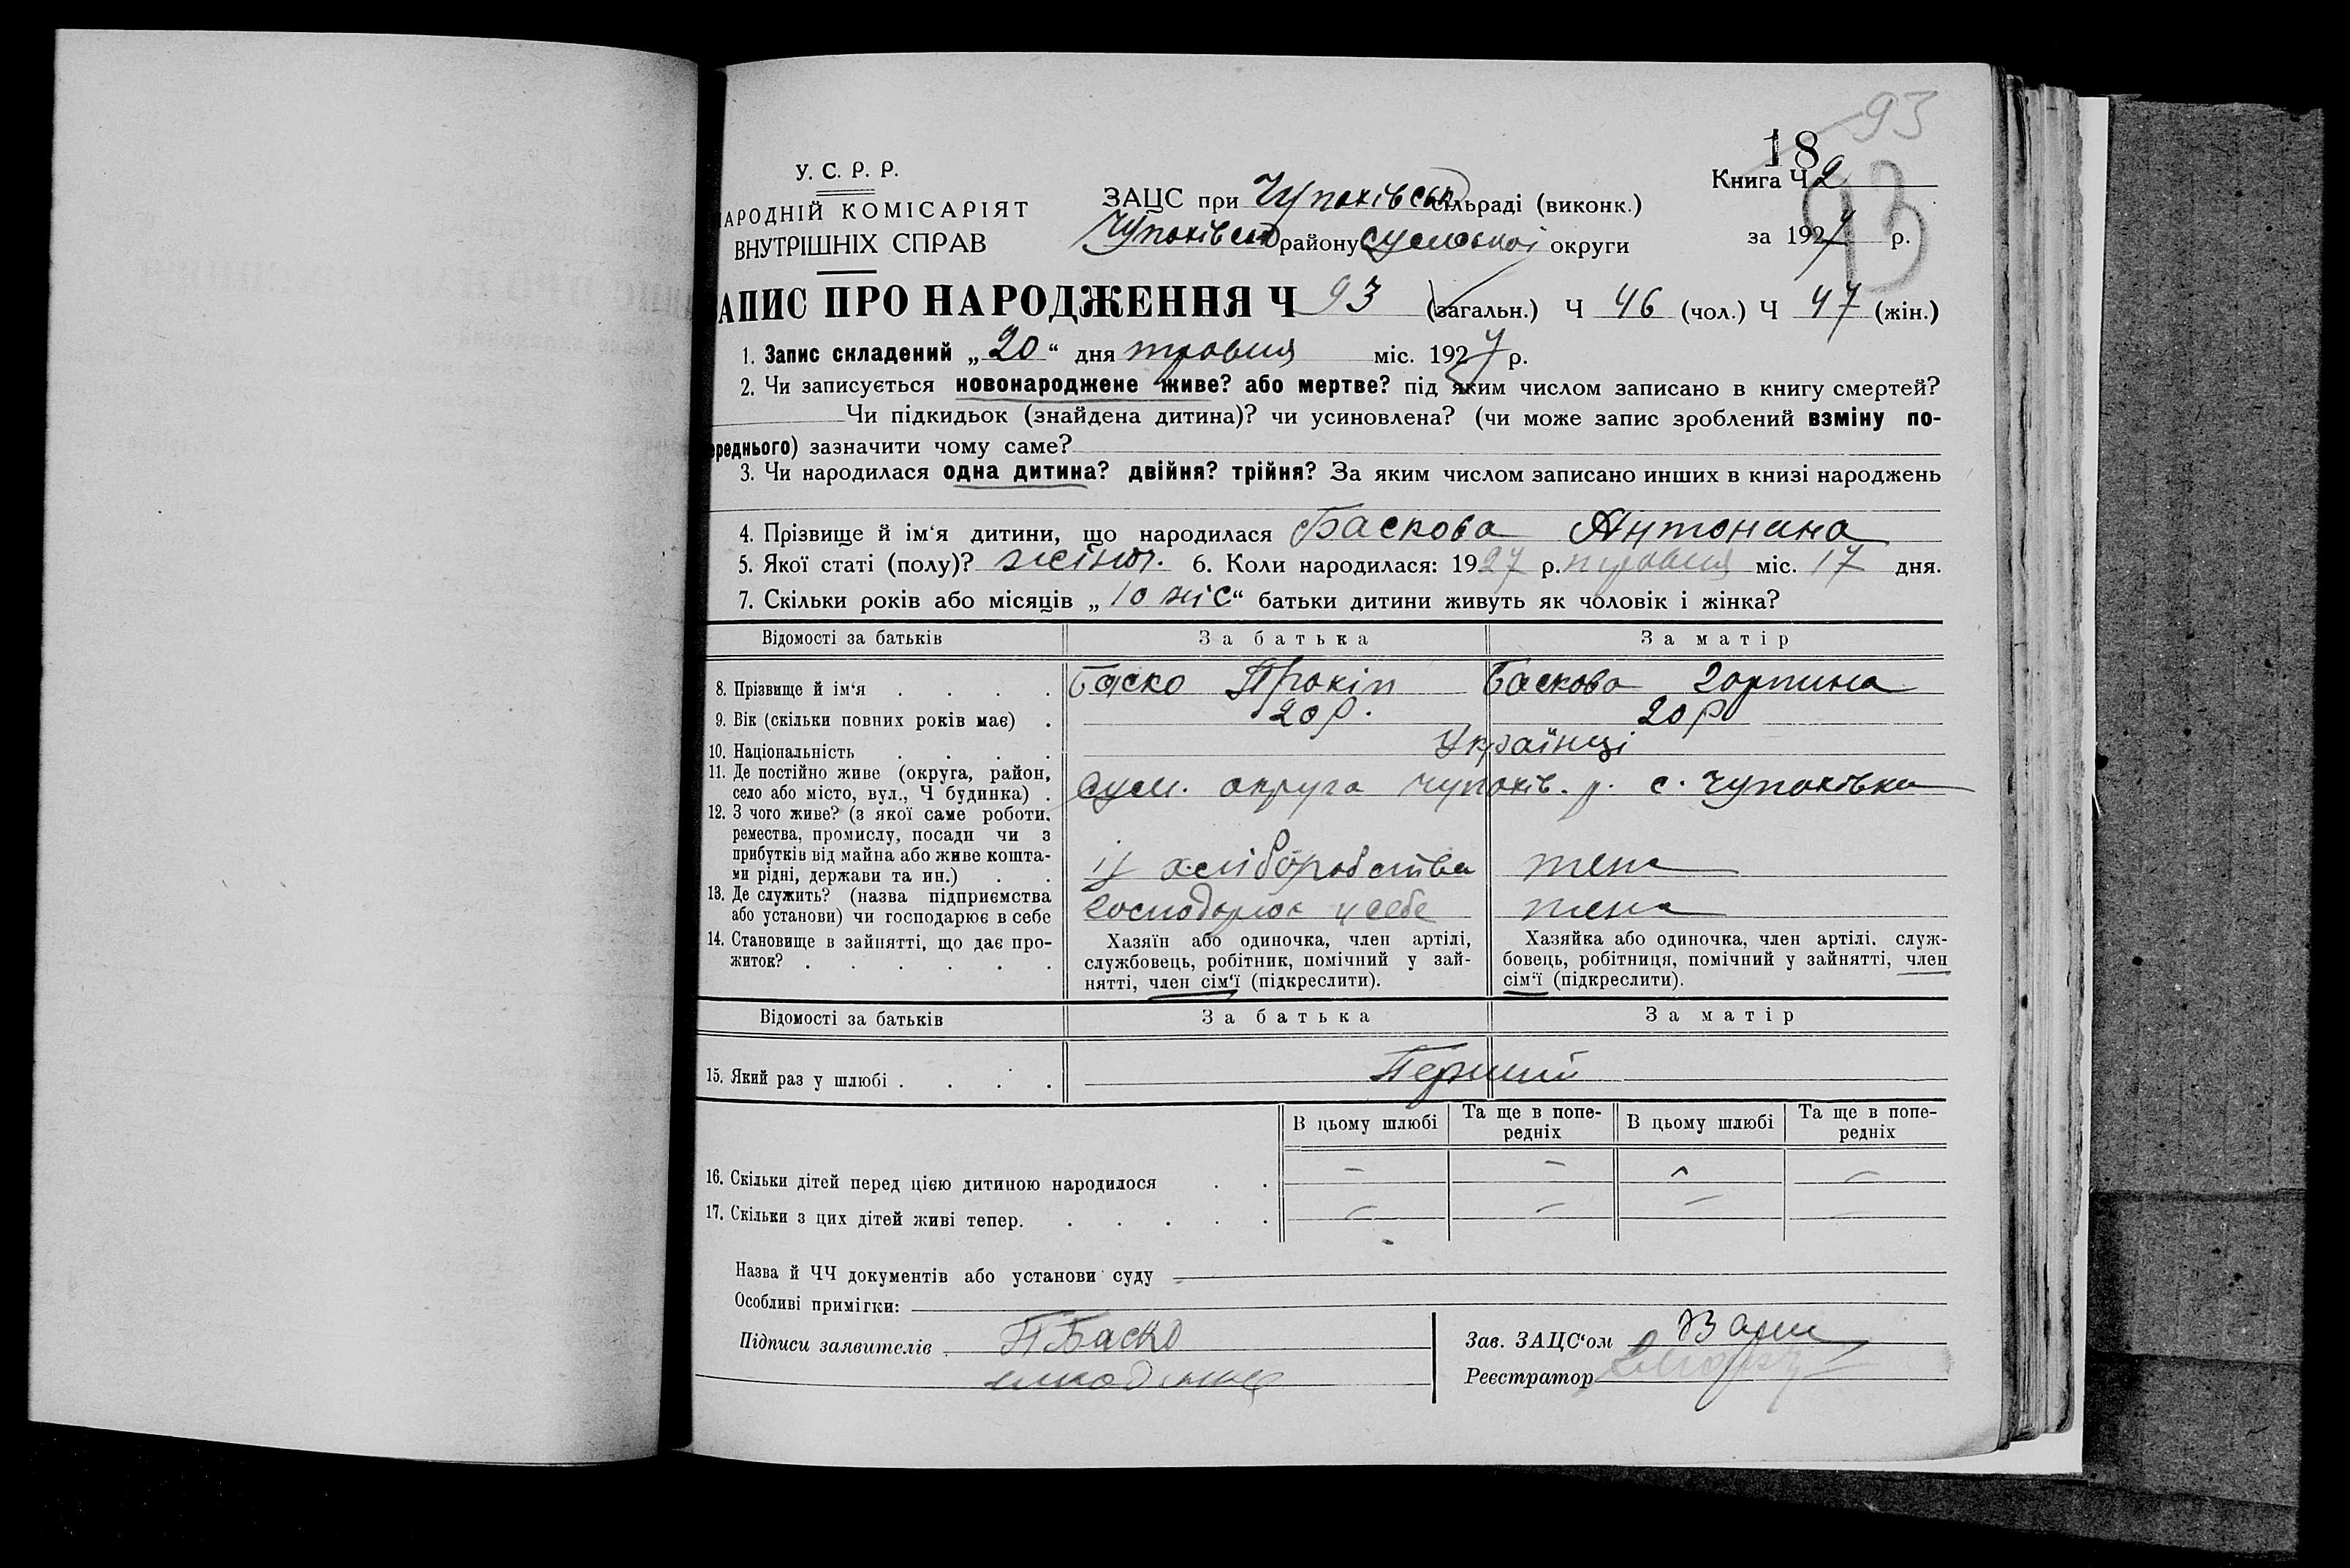 93
18
У. С. Р. Р.
Книга Ч 2
93
АРОДНІЙ КОМІСАРІЯТ
ВНУТРІШНІХ СПРАВ
ЗАЦС при Чупахівськ сільраді (виконк.)
Чупахівськ району Сумської округи
за 1927 р.
АПИС ПРО НАРОДЖЕННЯ Ч 93 (загальн.) Ч 46 (чол.) Ч 47 (жін.)
1. Запис складений „20“ дня травня міс. 1927 р.
2. Чи записується новонароджене живе? або мертве? під яким числом записано в книгу смертей?
Чи підкидьок (знайдена дитина)? чи усиновлена? (чи може запис зроблений взміну по-
ереднього) зазначити чому саме?
3. Чи народилася одна дитина? двійня? трійня? За яким числом записано инших в книзі народжень
4. Прізвище й ім‘я дитини, що народилася Баскова Антонина
5. Якої статі (полу)? жіноч. 6. Коли народилася: 1927 р. травня міс. 17 дня.
7. Скільки років або місяців „10 міс“ батьки дитини живуть як чоловік і жінка?
Відомості за батьків За батька За матір
8. Прізвище й ім‘я . . . . Баско Прокіп Баскова Горпина
9. Вік (скільки повних років має) . 20 р. 20 р
10. Національність . . . . Українці
11. Де постійно живе (округа, район,
село або місто, вул., Ч будинка) . Сум. округа Чупахів. р. с. Чупахівка
12. З чого живе? (з якої саме роботи,
ремества, промислу, посади чи з
прибутків від майна або живе кошта-
ми рідні, держави та ин.) . . із хліборобства теж
13. Де служить? (назва підприємства
або установи) чи господарює в себе господарює у себе теж
14. Становище в зайнятті, що дає про-
житок? . . . . . .
Хазяїн або одиночка, член артілі,
службовець, робітник, помічний у зай-
нятті, член сім‘ї (підкреслити).
Хазяйка або одиночка, член артілі, служ-
бовець, робітниця, помічний у зайнятті, член
сім‘ї (підкреслити).
Відомості за батьків За батька За матір
15. Який раз у шлюбі . . . . Перший
В цьому шлюбі Та ще в попе-
редніх В цьому шлюбі Та ще в попе-
редніх
16. Скільки дітей перед цією дитиною народилося . . – – – –
17. Скільки з цих дітей живі тепер. . . . . . – – – –
Назва й ЧЧ документів або установи суду
Особливі примітки:
Підписи заявителів П Баско
Зав. ЗАЦС‘ом
Реєстратор